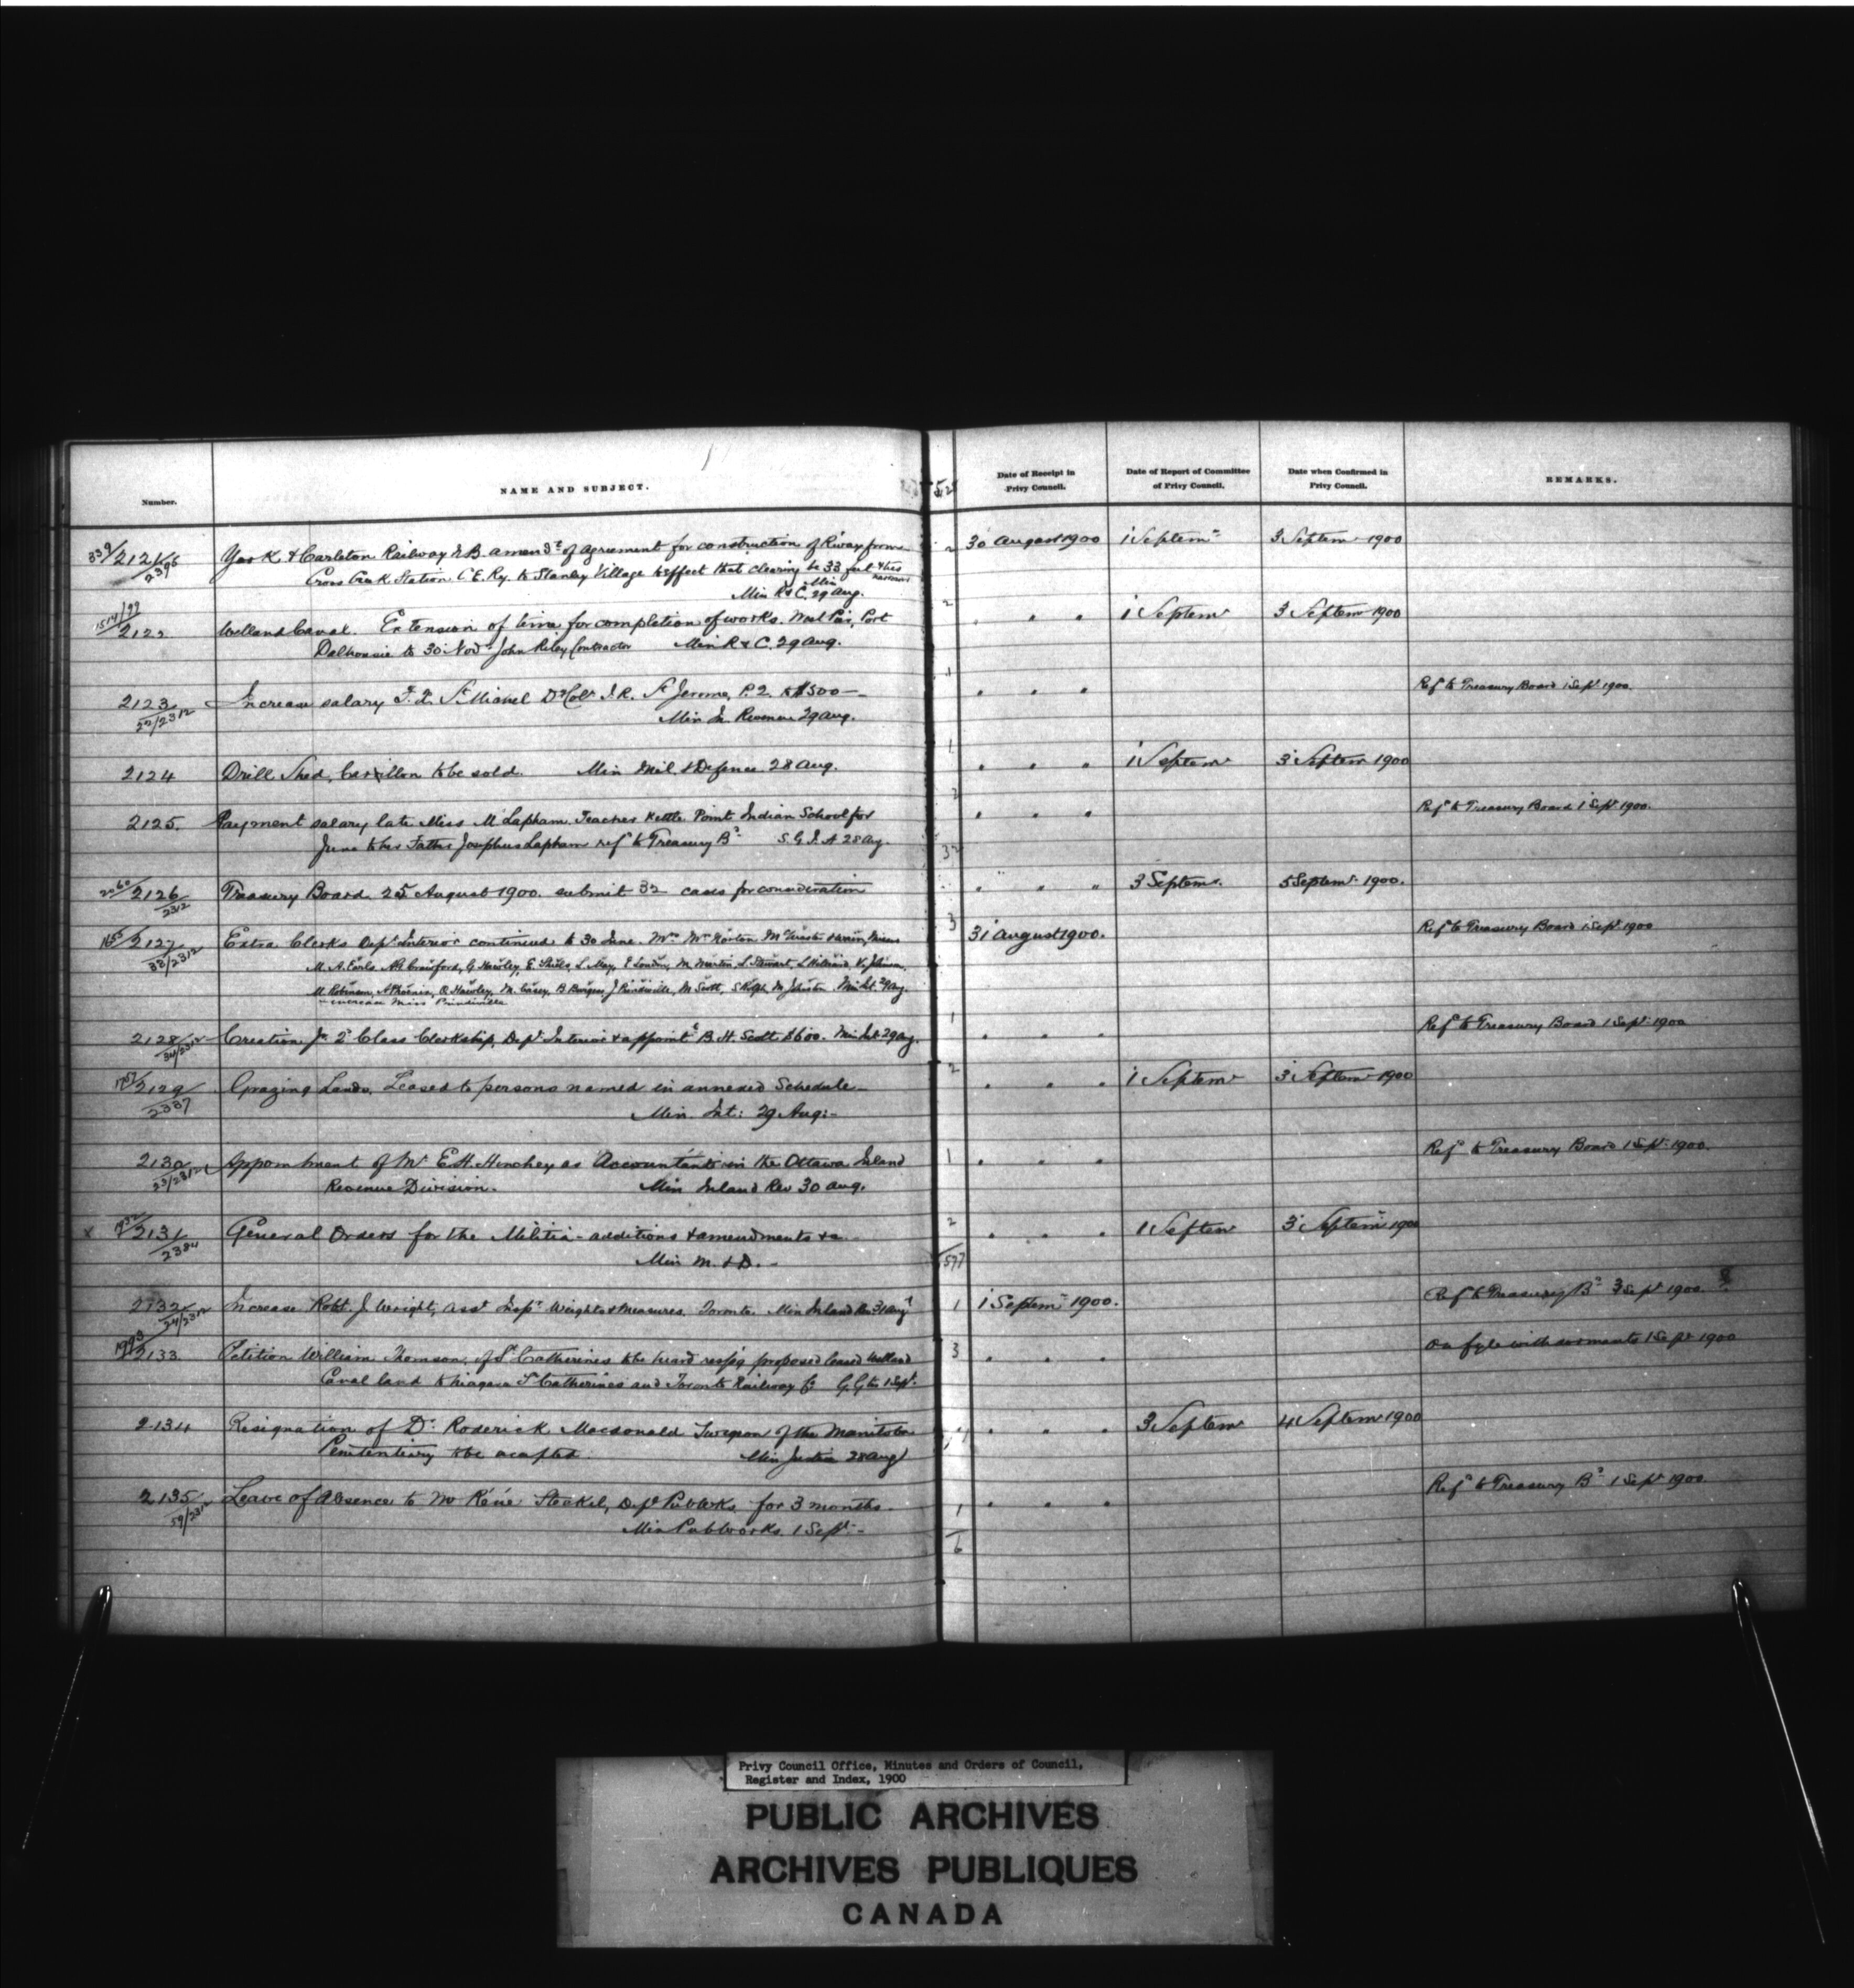 Number.
NAME AND SUBJECT.
Date of Receipt in Privy Council.
Date of Report of Committee of Privy Council.
Date when Confirmed in Privy Council.
REMARKS.
339/2121 York & Carleton Railway N.B. amendt of agreement for construction of R'way from 30 August 1900 1 Septemr 3 Septemr 1900
Cross Creek Station C.E. Ry. to Stanley Village to effect that clearing be 33 feet
Min R & C. 29 Aug.
2122 Welland Canal. Extension of time for completion of works. West Pier, Port " " " 1 Septemr 3 Septemr 1900
Dalhousie to 30 Novr John Riley Contractor Min R & C. 29 Aug.
2123 Increase salary St Michel I.R. St Jerome, P.Q. to $500 " " " Refd to Treasury Board 1 Sept 1900
52/2312 Min In. Revenue 29 Aug.
2124 Drill Shed, Carillon to be sold. Min Mil & Defence. 28 Aug. " " " 1 Septemr 3 Septemr 1900
2125. Payment salary late Miss M Lapham Teacher Kettle Point Indian School for " " " Refd to Treasury Board 1 Sept 1900.
June to her Father Josephus Lapham refd to Treasury Bd S.G.I.A 28 Aug.
2126 Treasury Board 25 August 1900. submit 32 cases for consideration " " " 3 Septemr. 5 Septemr 1900.
2312
2127 Extra Clerks Dept Interior continued to 30 June. 31 August 1900. Refd to Treasury Board 1 Sept 1900
33/2312 M. A. Earls Crawford, G Hawley, L. May, M. Martin, L. Stewart,
M. Robinson, M. Casey, B Burgess, M Scott, M Johnston Min Int. 29 Aug.
increase Miss
2128 Creation Jr 2d Class Clerkship, Dept Interior & appointt B. H. Scott $600. Min Int 29 Aug. " " " Refd to Treasury Board 1 Sept 1900
34/2312
2129 Grazing Lands. Leased to persons named in annexed Schedule " " " 1 Septemr 3 Septemr 1900
2387 Min. Int: 29 Aug:-
2130 Appointment of Mr E.H. Hinchey as Accountant in the Ottawa Inland " " " Refd to Treasury Board 1 Sept 1900.
23/2312 Revenue Division. Min Inland Rev 30 Aug.
x 2131 General Orders for the Militia - additions & amendments &c " " " 1 Septemr 3 Septemr 1900
2384 Min M. & D. -
2132 Increase Robt. J. Wright, Asst Inspr Weights & Measures. Toronto. Min Inland Rev 31 Aug 1 Septemr 1900. Refd to Treasury Bd 3 Sept 1900.
24/2312
2133 Petition William Thomson, of St Catherines to be heard resp'g proposed lease Welland " " " On fyle with 1 Sept 1900
Canal land to Niagara St Catherines and Toronto Railway Co 1 Sept.
2134 Resignation of Dr Roderick Macdonald Surgeon of the Manitoba " " " 3 Septemr 4 Septemr 1900
Penitentiary to be accepted. Min Justice 28 Aug
2135 Leave of Absence to Mr Réné Steckel, Dept Pub Works for 3 months. " " " Refd to Treasury Bd 1 Sept 1900.
59/2312 Min Pub Works 1 Sept -
Privy Council Office, Minutes and Orders of Council,
Register and Index, 1900
PUBLIC ARCHIVES
ARCHIVES PUBLIQUES
CANADA